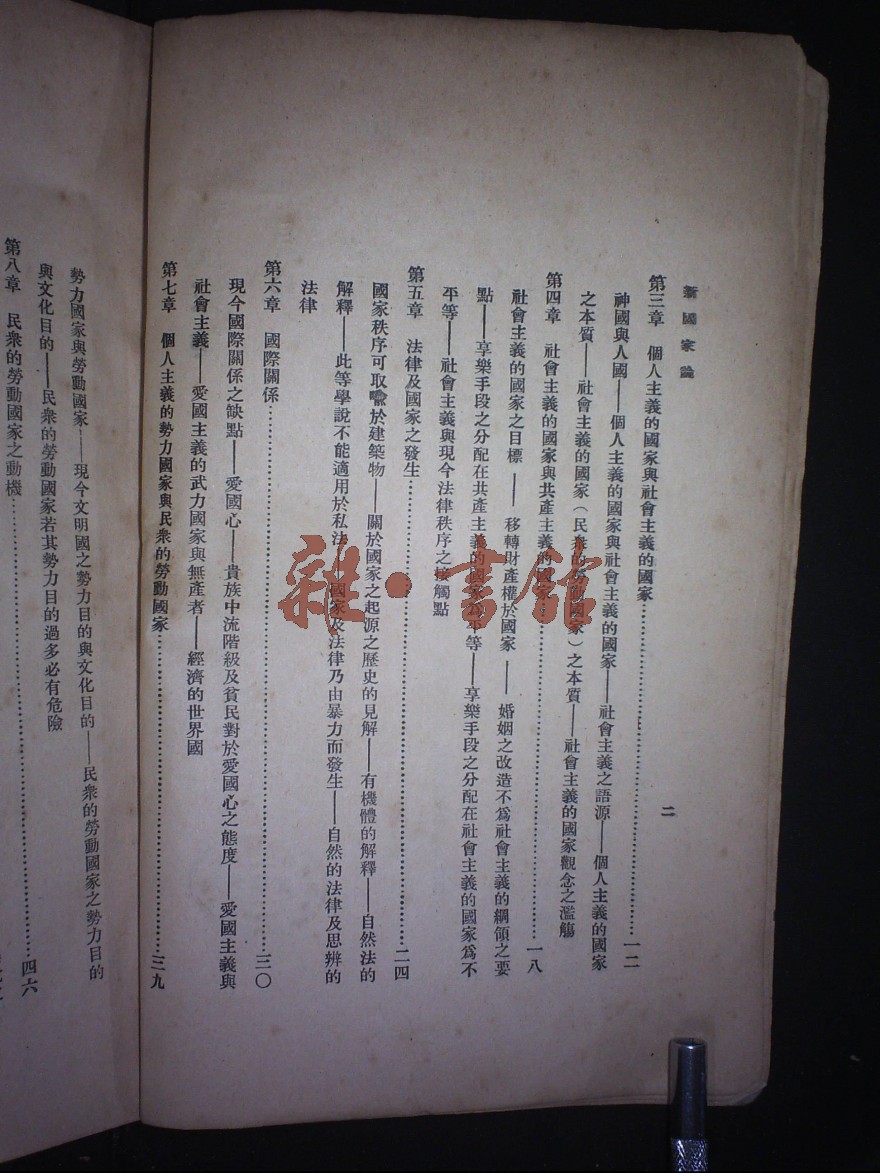 新國家論
二
第三章　個人主義的國家與社會主義的國家…………一二
神國與人國——個人主義的國家與社會主義的國家——社會主義之語源——個人主義的國家
之本質——社會主義的國家（民衆的勞動國家）之本質——社會主義的國家觀念之濫觴
第四章　社會主義的國家與共產主義的國家…………一八
社會主義的國家之目標——移轉財產權於國家——婚姻之改造不爲社會主義的綱領之要
點——享樂手段之分配在共產主義的國家爲平等——享樂手段之分配在社會主義的國家爲不
平等——社會主義與現今法律秩序之接觸點
第五章　法律及國家之發生…………二四
國家秩序可取喩於建築物——關於國家之起源之歷史的見解——有機體的解釋——自然法的
解釋——此等學說不能適用於私法——國家及法律乃由暴力而發生——自然的法律及思辨的
法律
第六章　國際關係…………三〇
現今國際關係之缺點——愛國心——貴族中流階級及貧民對於愛國心之態度——愛國主義與
社會主義——愛國主義的武力國家與無產者——經濟的世界國
第七章　個人主義的勢力國家與民衆的勞動國家…………三九
勢力國家與勞動國家——現今文明國之勢力目的與文化目的——民衆的勞動國家之勢力目的
與文化目的——民衆的勞動國家若其勢力目的過多必有危險
第八章　民衆的勞動國家之動機…………四六
雜·書館